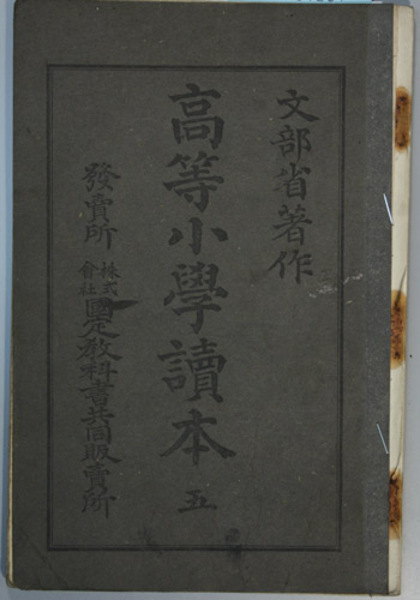 文部省著作
高等小學讀本 五
發賣所 株式會社 國定教科書共同販賣所